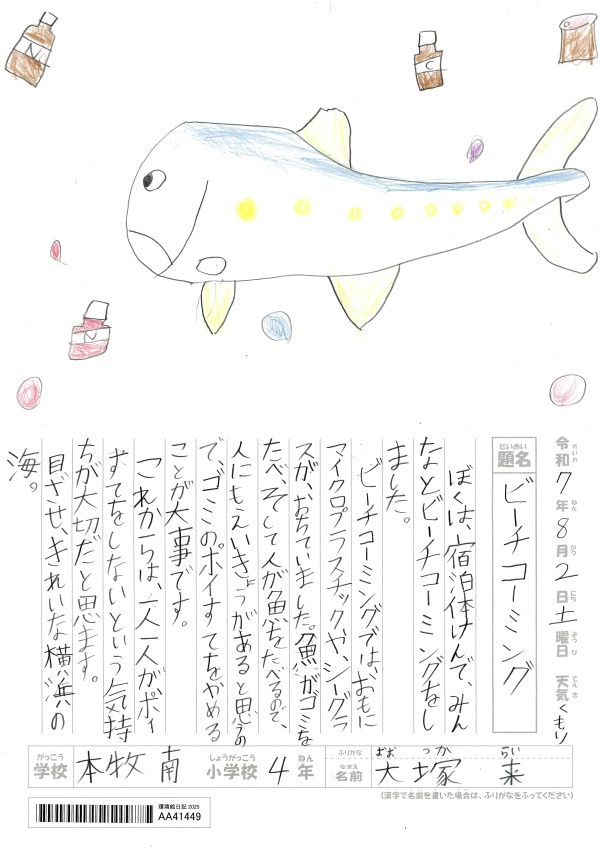 N
C
N
令和7年8月2日土曜日 天気くもり
れいわ ねん がつ にち よう び てん き
だいめい
題名
ビーチコーミング
ぼくは、宿泊体けんで、みん
なとビーチコーミングをし
ました。
ビーチコーミングでは、おもに
マイクロプラスチックや、シーグラ
スが、おちていました。魚がゴミを
たべ、そして人が魚をたべるので、
人にもえいきょうがあると思うの
で、ゴミのポイすてをやめる
ことが大事です。
これからは、一人一人がポイ
すてをしないという気持
ちが大切だと思います。
目ざせ、きれいな横浜の
海。
がっこう
学校
本牧南
しょうがっこう
小学校
4
ねん
年
ふりがな
なまえ
名前
おお つか らい
大塚 来
(漢字で名前を書いた場合は、ふりがなをふってください)
環境絵日記 2025
AA41449